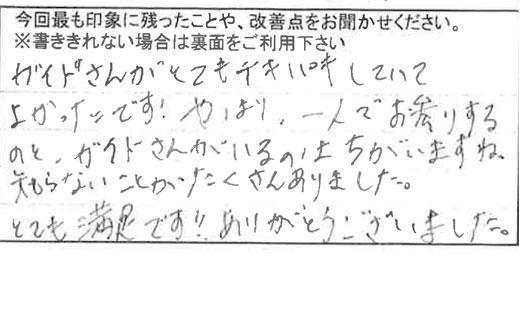 今回最も印象に残ったことや、改善点をお聞かせください。
※書ききれない場合は裏面をご利用下さい
ガイドさんがとてもテキパキしていて
よかったです！やはり、一人でお参りする
のと、ガイドさんがいるのはちがいますね、
知らないことがたくさんありました。
とても満足です!!ありがとうございました。